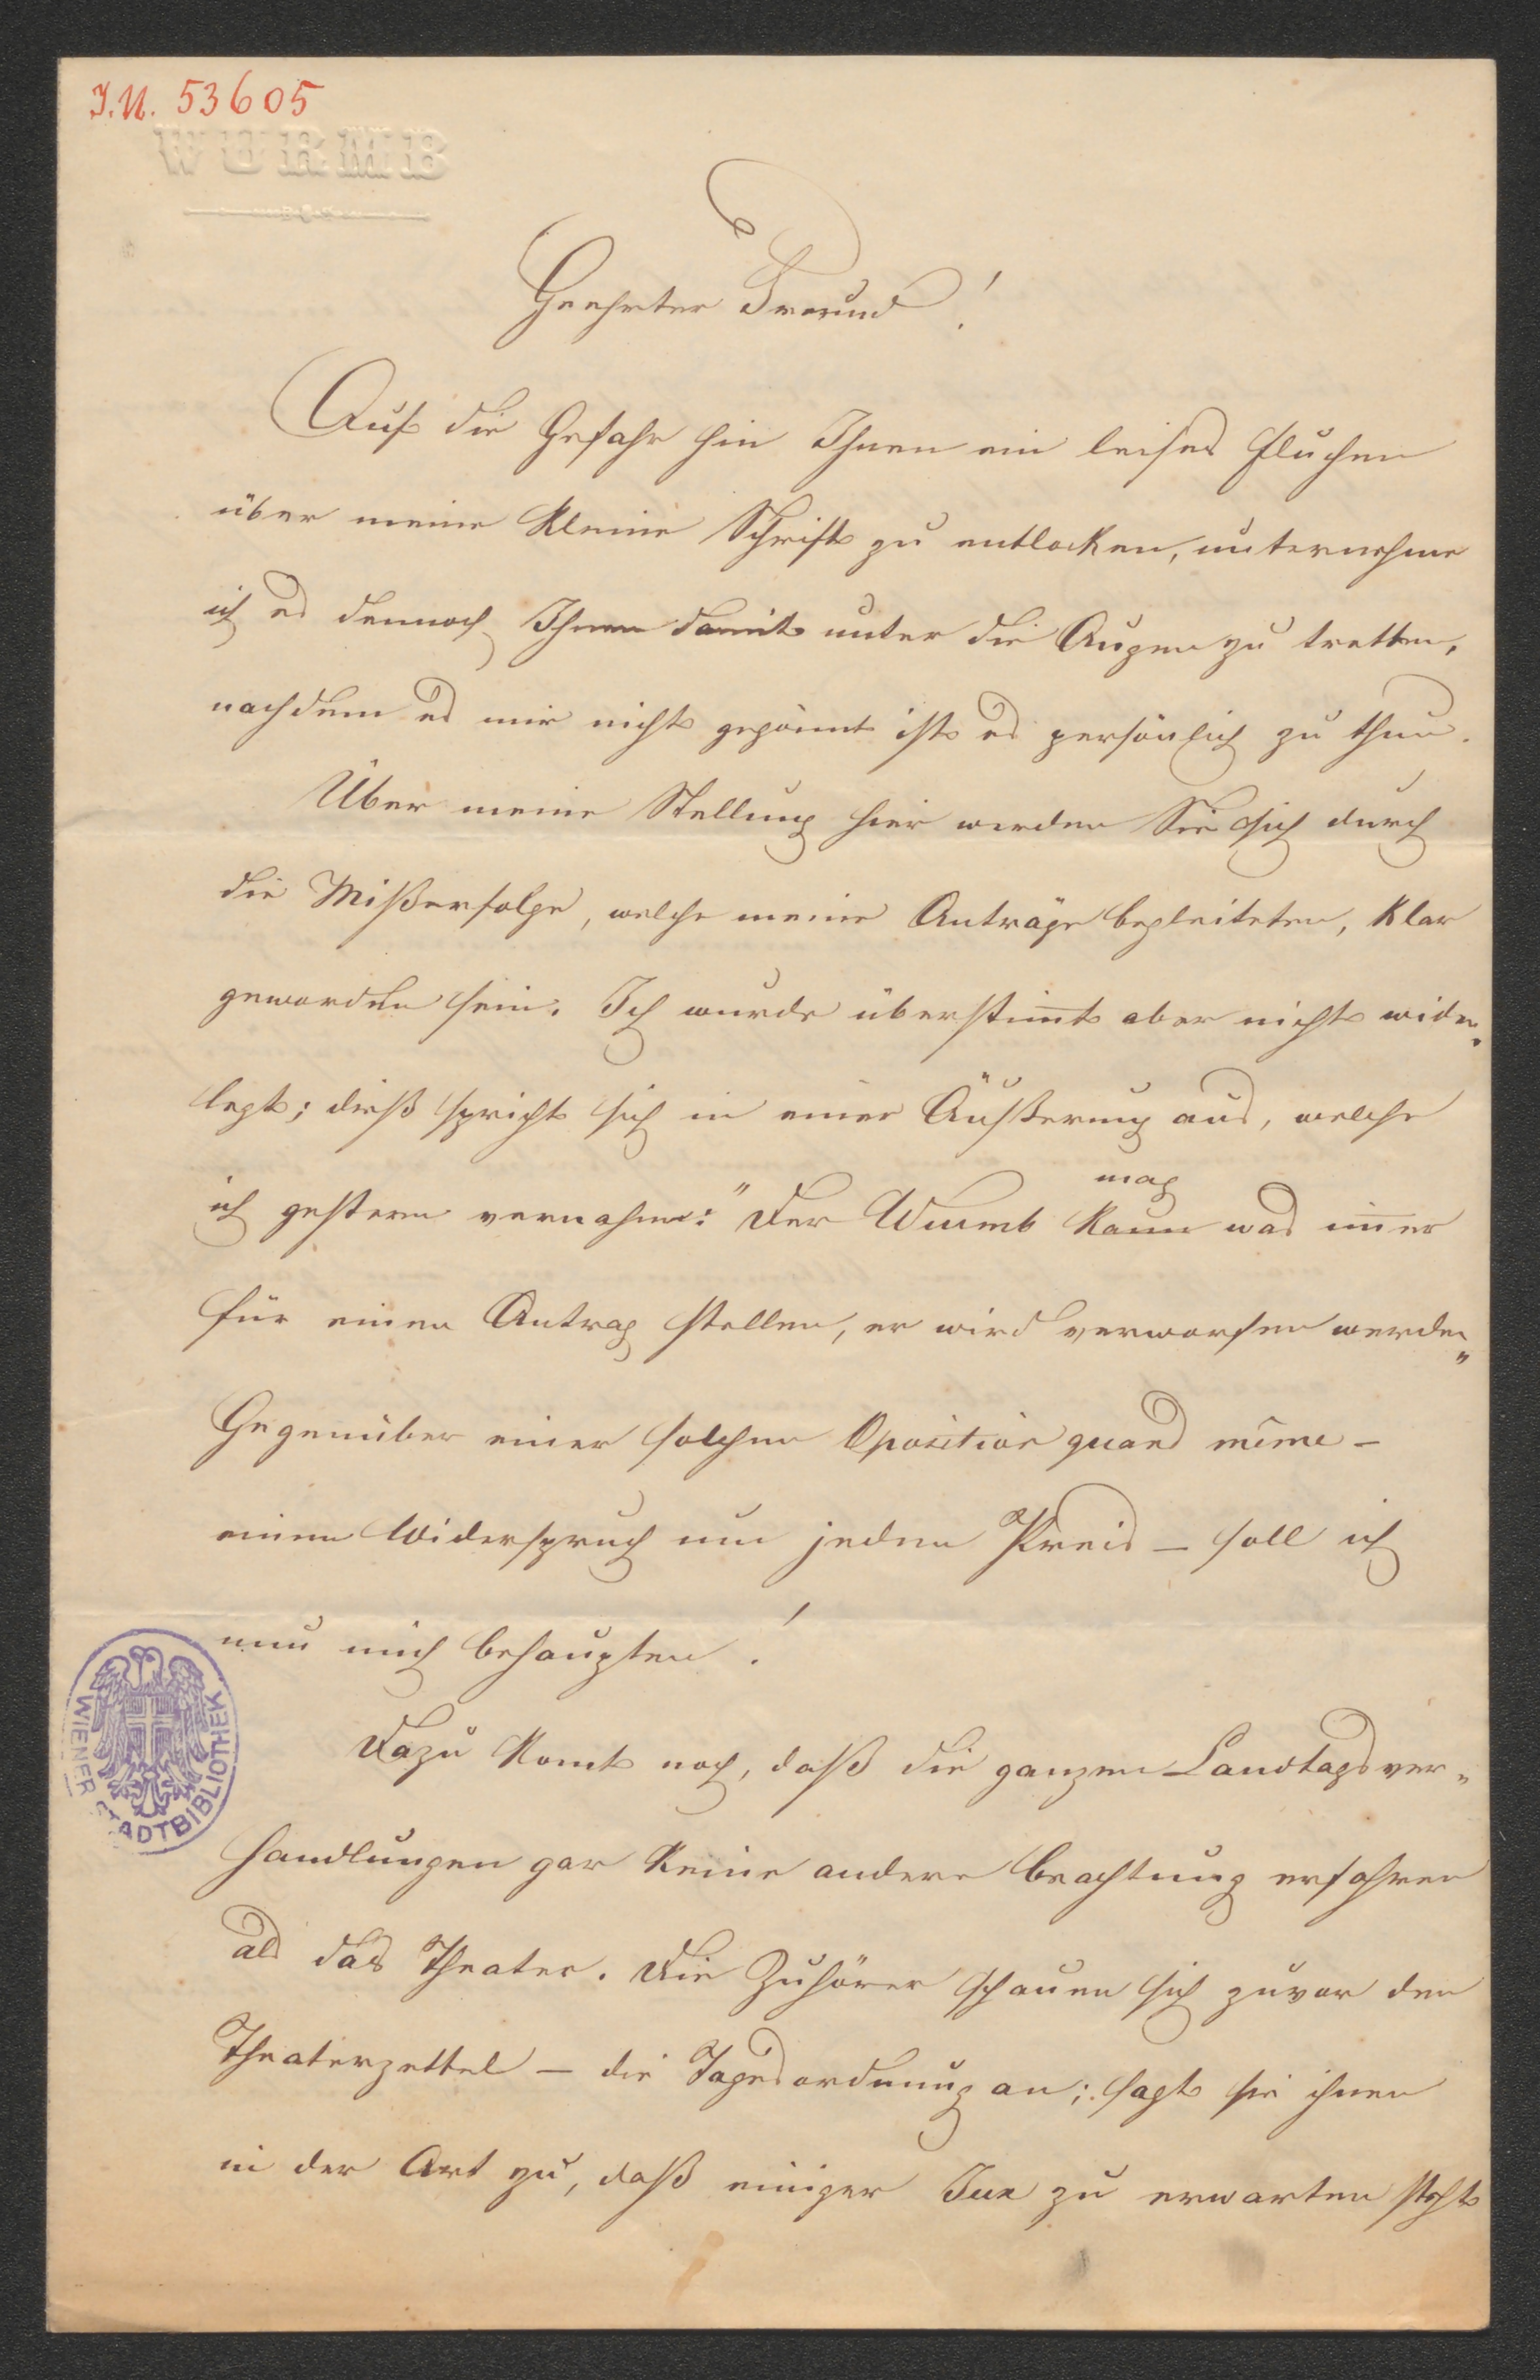 I.N. 53605
WURMB
Geehrter Freund!
Auf die Gefahr hin Ihnen ein leises Fluchen
über meine kleine Schrift zu entlocken, unternehme
ich es dennoch Ihnen damit unter die Augen zu tretten,
nachdem es mir nicht gegönnt ist es persönlich zu thun.
Über meine Stellung hier werden Sie sich durch
die Mißerfolge, welche meine Anträge begleiteten, klar
geworden sein. Ich wurde überstimt aber nicht wider-
legt; dieß spricht sich in einer Äußerung aus, welche
mag
ich gestern vernahm: "Der Wurmb kann was imer
für einen Antrag stellen, er wird verworfen werden"
Gegenüber einer solchen Oposition quand même -
einem Widerspruch um jeden Preis - soll ich
nun mich behaupten!
Dazu komt noch, daß die ganzen Landtagsver-
handlungen gar keine andere Beachtung erfahren
als das Theater. Die Zuhörer schauen sich zuvor den
Theaterzettel - die Tagesordnung an; sagt sie ihnen
in der Art zu, daß einiger Jux zu erwarten steht
WIENER STADTBIBLIOTHEK